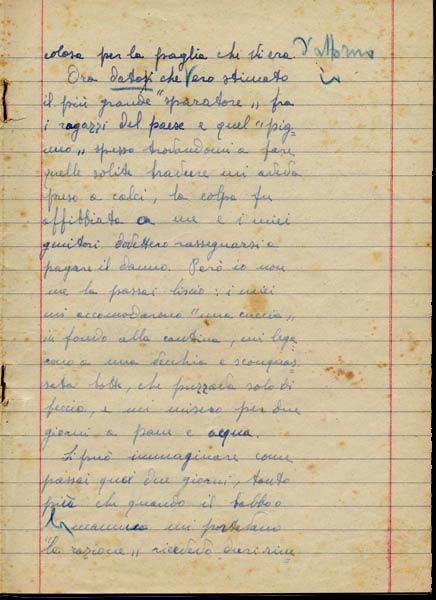 colosa per la paglia che vi era d'attorno
Ora datosi che ero stimato
il più grande "sparatore" fra
i ragazzi del paese e quel "pig-
meo" spesso trovandomi a fare
quelle solite bravure mi aveva
preso a calci, la colpa fu
affibbiata a me e i miei
genitori dovettero rassegnarsi a
pagare il danno. Però io non
me la passai liscio: i miei
mi accomodarono "una cuccia"
in fondo alla cantina, mi lega
rono a una vecchia e sconquas
sata botte, che puzzava solo di
feccia, e mi misero per due
giorni a pane e acqua.
Si può immaginare come
passai quei due giorni, tanto
più che quando il babbo o
la mamma mi portavano
"la razione" ricevevo